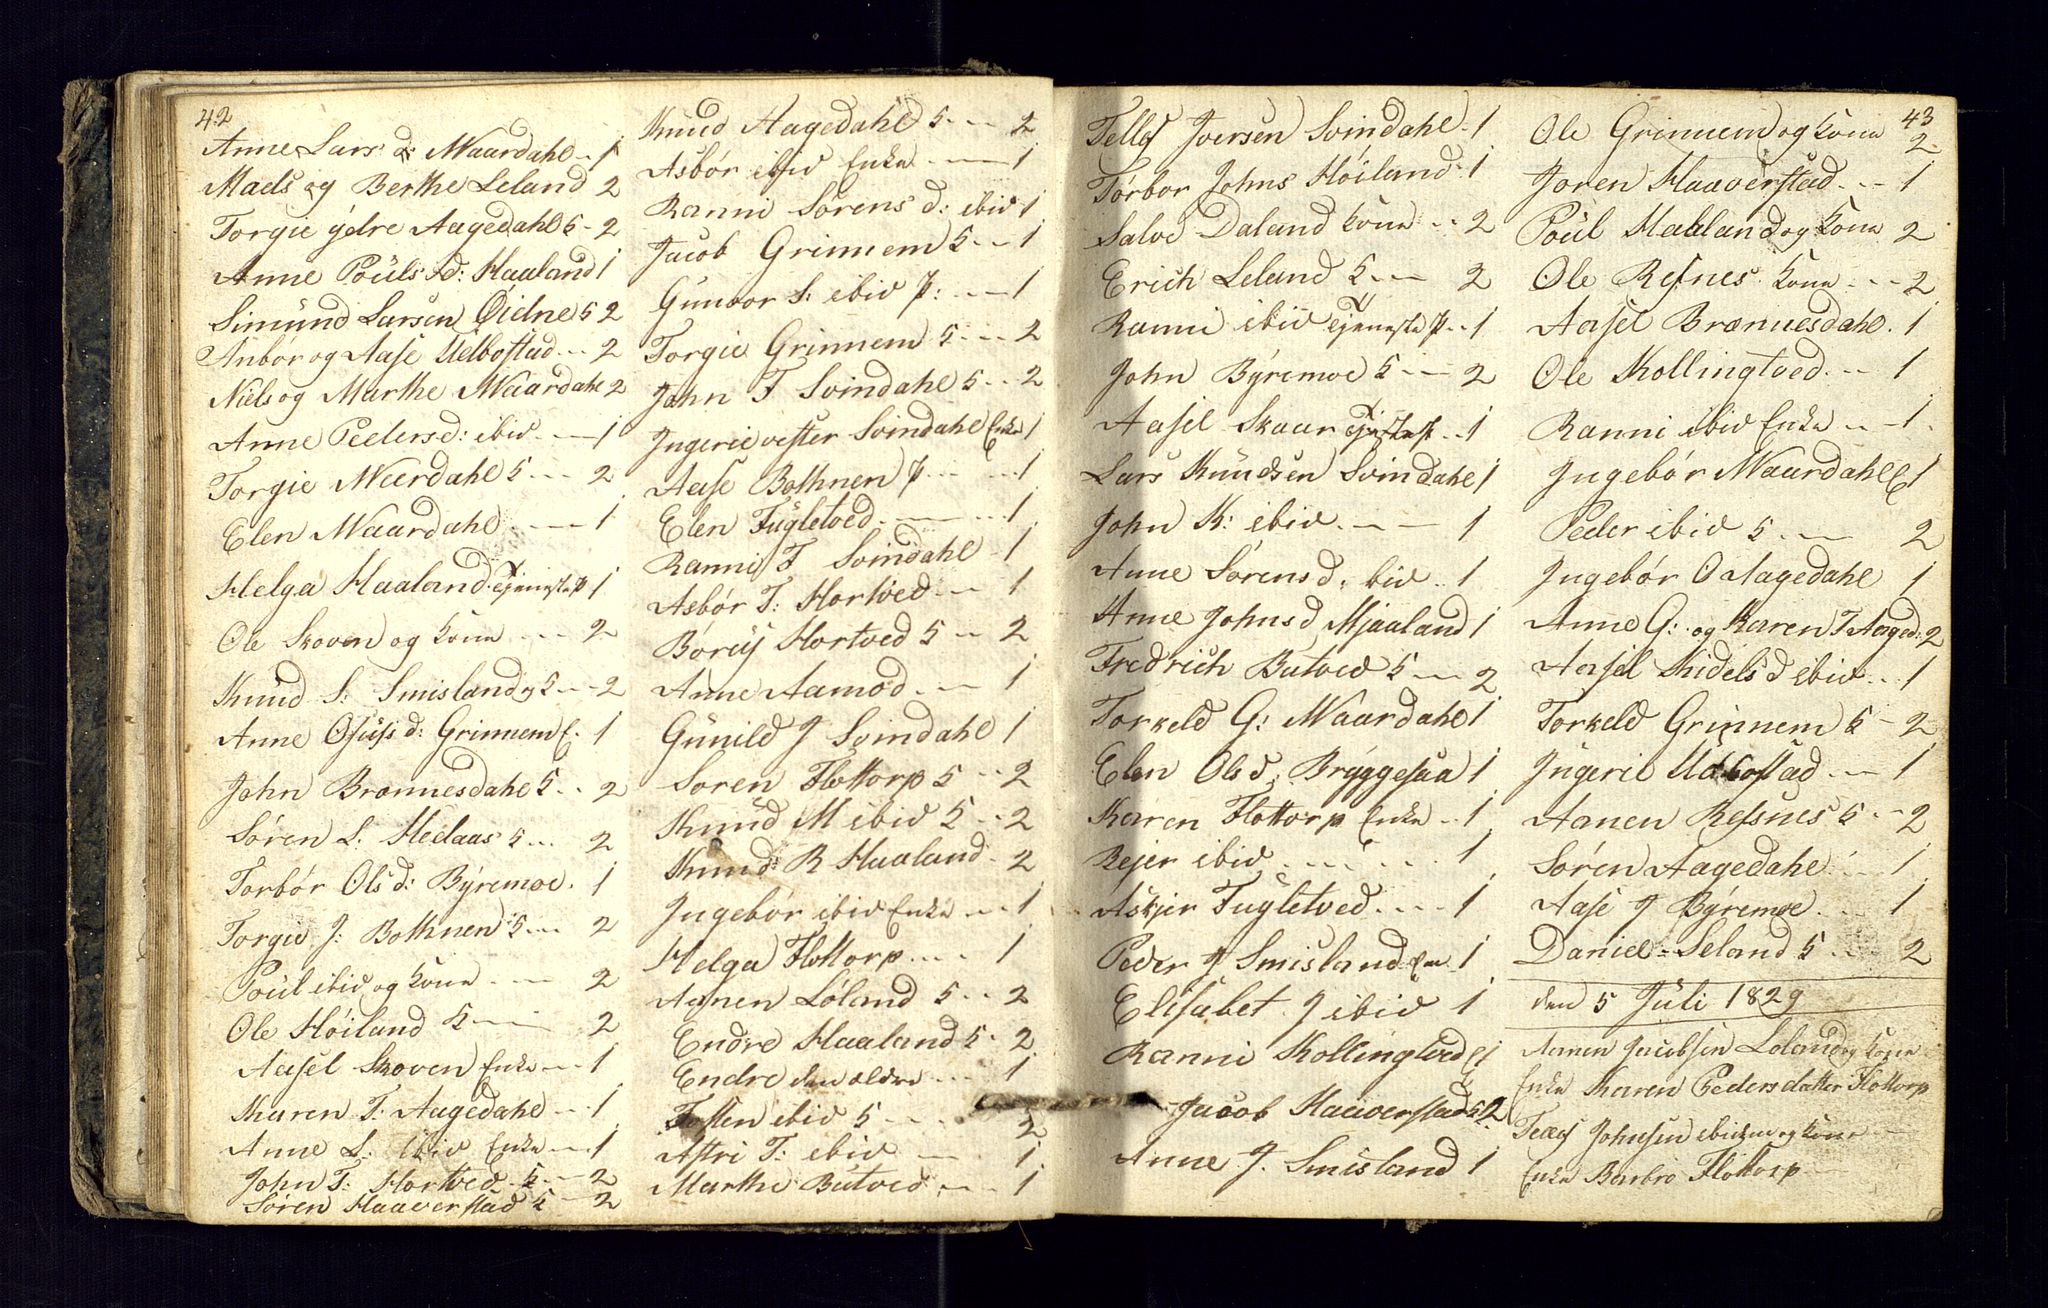 42
Anne Lars d: Waardahl - 1
Mads og Berthe Leland 2
Torgie ÿdre Aagedahl 5 - 2
Anne Pouls d: Haaland 1
Simund Larsen Øidne 5 2
Anbør og Aase Udbostad -- 2
Niels og Marthe Waardahl 2
Anne Peders d: ibid --- 1
Torgie Waardahl 5 --- 2
Elen Waardahl ---- 1
Helga Haaland Tjenestep 1
Ole Skoven og kone --- 2
Knud S: Smisland og k -- 2
Anne Osufs d: Grinnem E. 1
John Brønnesdahl 5 -- 2
Søren L. Hedaas 5 --- 2
Torbør Ols d: Býremoe . 1
Torgie J: Bothnen 5 --- 2
Poul ibid og kone --- 2
Ole Høiland 5 --- 2
Aasel Skoven Enke --- 1
Karen T: Aagedahl --- 1
Anne L: ibid Enke --- 1
John T: Hortved 5 --- 2
Søren Haaverstad 5 -- 2
Knud Aagedahl 5 --- 2
Asbør ibid Enke --- 1
Ranni Sørens d: ibid 1
Jacob Grinnem 5 -- 1
Gunvor S: ibid p: --- 1
Torgie Grinnem 5 --- 2
John T Svindahl 5 -- 2
Ingerie vester Svindahl Enke 1
Aase Bothnen p --- 1
Elen Fugletved --- 1
Ranni T Svindahl - 1
Asbør T: Hortved -- 1
Børuf Hortved 5 -- 2
Anne Aamod --- 1
Gunild J Svindahl 1
Soren Flottorp 5 -- 2
Knud M ibid 5 -- 2
Knud R Haaland - 2
Ingebør ibid Enke --- 1
Helga Flottorp --- 1
Aanen Løland 5 -- 2
Endre Haaland 5 - 2
Endre den ældre --- 1
Tosten ibid 5 ---- 2
Astri T: ibid -- 1
Marthe Butved -- 1
43
Tellef Joersen Svindahl - 1
Torbor Johns Høiland 1
Salve Daland kone -- 2
Erich Leland 5 -- 2
Ranni ibid Tjeneste p -- 1
John Býremoe 5 -- 2
Aasel Skaar Tjenstep -- 1
Lars Knudsen Svindahl 1
John K: ibid --- 1
Anne Sørens d. ibid -- 1
Anne Johns d Mjaaland 1
Fredrich Butved 5 -- 2
Torkeld G: Waardahl 1
Elen Ols d: Brýggesaa 1
Karen Flottorp Enke -- 1
Rejer ibid ------ 1
Askjer Fugletved ---- 1
Peder J Smisland Em 1
Elisabet J ibid 1
Ranni Kollingtved E 1
Jacob Haaverstad 5 2
Anne J. Smisland 1
Ole Grinnem og kone 2
Joren Haaverstad --- 1
Poul Haaland og kone 2
Ole Refsnes kone --- 2
Aasel Brønnesdahl . 1
Ole Kollingtved --- 1
Ranni ibid Enke -- 1
Ingebør Waardahl E 1
Peder ibid 5 --- 2
Ingebør O Aagedahl 1
Anne G: og Karen T Aaged: 2
Aasel Kidels d ibid -- 1
Torkeld Grinnem 5 - 2
Ingerie Udbostad --- 1
Aanen Refsnes 5 -- 2
Søren Aagedahl -- 1
Aase J Býremoe --- 1
Daniel Leland 5 --- 2
den 5 Juli 1829
Aanen Jacobsen Loland og kone
Enke Karen Pedersdatter Flottorp
Tellef Johnsen ibidem og kone
Enke Barbro Flottorp